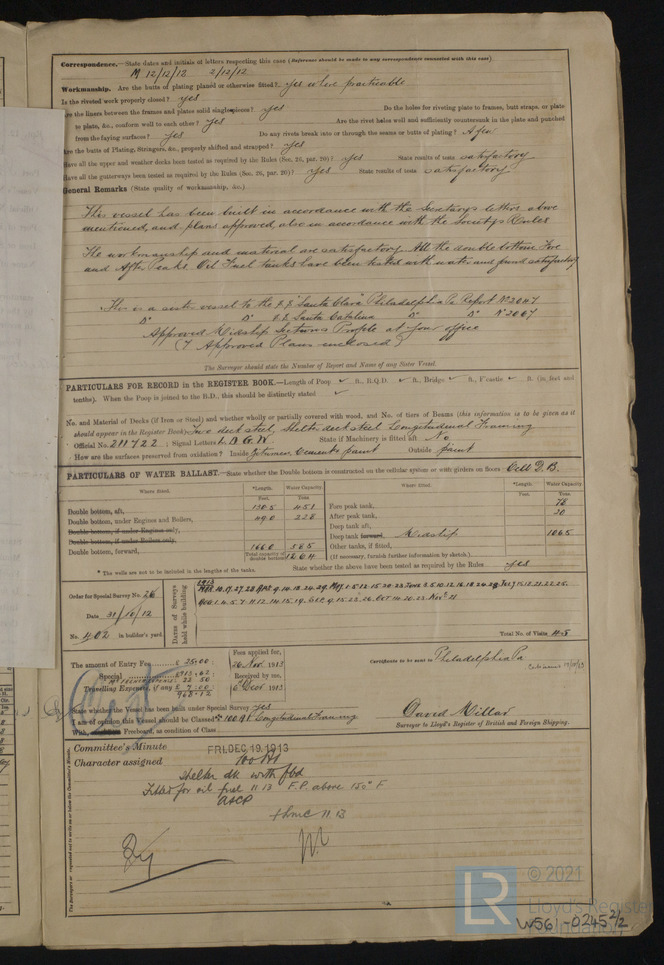 Correspondence.—State dates and initials of letters respecting this case (Reference should be made to any correspondence connected with this case).
M 12/12/12 2/12/12
Workmanship. Are the butts of plating planed or otherwise fitted? yes where practicable
Is the riveted work properly closed? yes
Are the liners between the frames and plates solid single pieces? yes Do the holes for riveting plate to frames, butt straps, or plate
to plate, &c., conform well to each other? yes Are the rivet holes well and sufficiently countersunk in the plate and punched
from the faying surfaces? yes Do any rivets break into or through the seams or butts of plating? A few
Are the butts of Plating, Stringers, &c., properly shifted and strapped? yes
Have all the upper and weather decks been tested as required by the Rules (Sec. 20, par. 20)? yes State results of tests satisfactory
Have all the gutterways been tested as required by the Rules (Sec. 20, par. 20)? yes State results of tests satisfactory
General Remarks (State quality of workmanship, &c.)
This vessel has been built in accordance with the Secretarys letters above
mentioned, and plans approved, also in accordance with the Society's Rules
The workmanship and material are satisfactory. All the double bottom Fore
and After Peaks Oil Fuel tanks have been tested with water and found satisfactory
This is a sister vessel to the S.S. "Santa Clara" Philadelphia Pa Report No 2047
Do Do S.S. Santa Catalina Do Do No 2067
Approved Midship Sections Profile at your office
(7 Approved Plans enclosed)
The Surveyor should state the Number of Report and Name of any Sister Vessel.
PARTICULARS FOR RECORD in the REGISTER BOOK.—Length of Poop ✓ ft., R.Q.D. ✓ ft., Bridge ✓ ft., F'castle ✓ ft. (in feet and
tenths). When the Poop is joined to the B.D., this should be distinctly stated ✓
No. and Material of Decks (if Iron or Steel) and whether wholly or partially covered with wood, and No. of tiers of Beams (this information is to be given as it
should appear in the Register Book) Two decks steel, Shelter deck steel Longitudinal Framing
Official No. 211722 ; Signal Letters L.D.G.W. State if Machinery is fitted aft No
How are the surfaces preserved from oxidation? Inside Cement & paint Outside paint
PARTICULARS OF WATER BALLAST.—State whether the Double bottom is constructed on the cellular system or with girders on floors Cell D.B.
Where fitted. *Length. Water Capacity Where fitted. *Length. Water Capacity
Feet. Tons Feet. Tons
Double bottom, aft, 130.5 451 Fore peak tank, 78
Double bottom, under Engines and Boilers, 49.0 228 After peak tank, 20
Double bottom, if under Engines only, Deep tank aft,
Double bottom, if under Boilers only, Deep tank forward, Midship 1065
Double bottom, forward, 166.0 585 Other tanks, if fitted,
Total capacity of double bottom 1264 (If necessary, furnish further information by sketch.)
* The wells are not to be included in the lengths of the tanks. State whether the above have been tested as required by the Rules yes
Order for Special Survey No. 26
Date 31/10/12
No. 402 in builder's yard.
Dates of Surveys held while building
1913
Total No. of Visits 45
The amount of Entry Fee £ 25:00 :
Special £913.62
Travelling Expenses, if any £ 7:00 :
Fees applied for,
26 Nov. 1913
Received by me,
6 Dec 1913
Certificate to be sent to Philadelphia Pa
State whether the Vessel has been built under Special Survey Yes
I am of opinion this Vessel should be Classed 100A1 Longitudinal Framing
With, Freeboard, as condition of Class
David Millar
Surveyor to Lloyd's Register of British and Foreign Shipping.
Committee's Minute FRI. DEC 19. 1913
Character assigned 100A1
Shelter dk with fbd
Fitted for oil fuel 11.13 F.P. above 150° F
A&CP
11.13
© 2021
LR
Lloyd's Register
Foundation
W561-0245 2/2